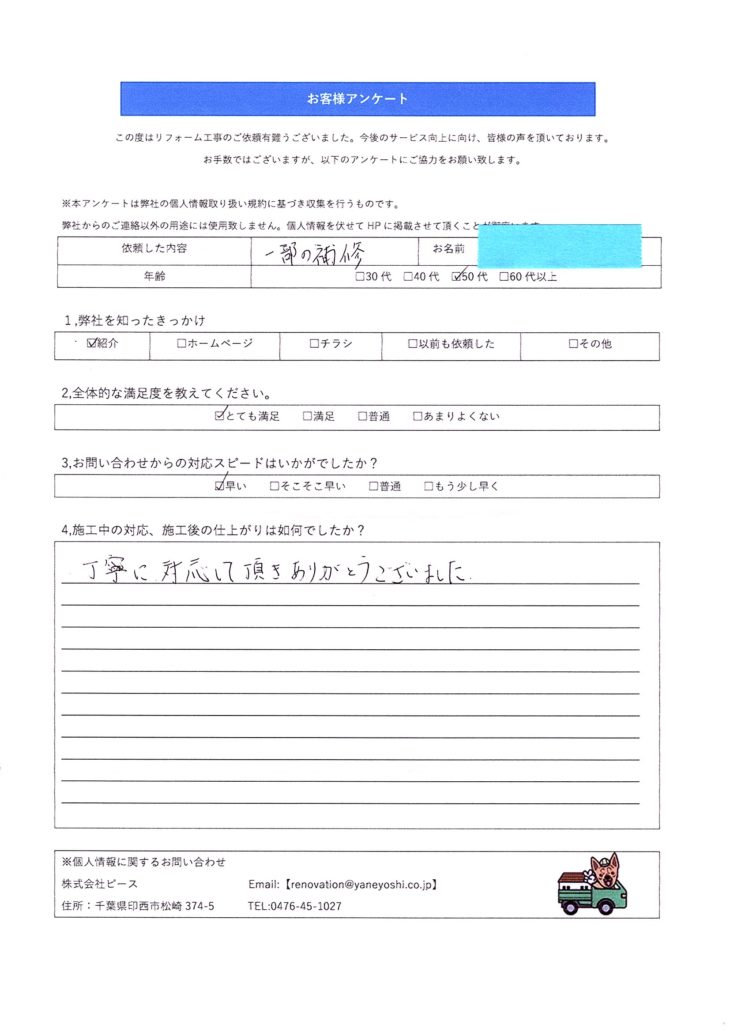 お客様アンケート
この度はリフォーム工事のご依頼有難うございました。今後のサービス向上に向け、皆様の声を頂いております。
お手数ではございますが、以下のアンケートにご協力をお願い致します。
※本アンケートは弊社の個人情報取り扱い規約に基づき収集を行うものです。
弊社からのご連絡以外の用途には使用致しません。個人情報を伏せて HP に掲載させて頂くこと
依頼した内容 一部の補修 お名前
年齢 □30 代 □40 代 ☑50 代 □60 代以上
1,弊社を知ったきっかけ
☑紹介 □ホームページ □チラシ □以前も依頼した □その他
2,全体的な満足度を教えてください。
☑とても満足 □満足 □普通 □あまりよくない
3,お問い合わせからの対応スピードはいかがでしたか？
☑早い □そこそこ早い □普通 □もう少し早く
4,施工中の対応、施工後の仕上がりは如何でしたか？
丁寧に対応して頂きありがとうございました
※個人情報に関するお問い合わせ
株式会社ピース Email:【renovation@yaneyoshi.co.jp】
住所：千葉県印西市松崎 374-5 TEL:0476-45-1027